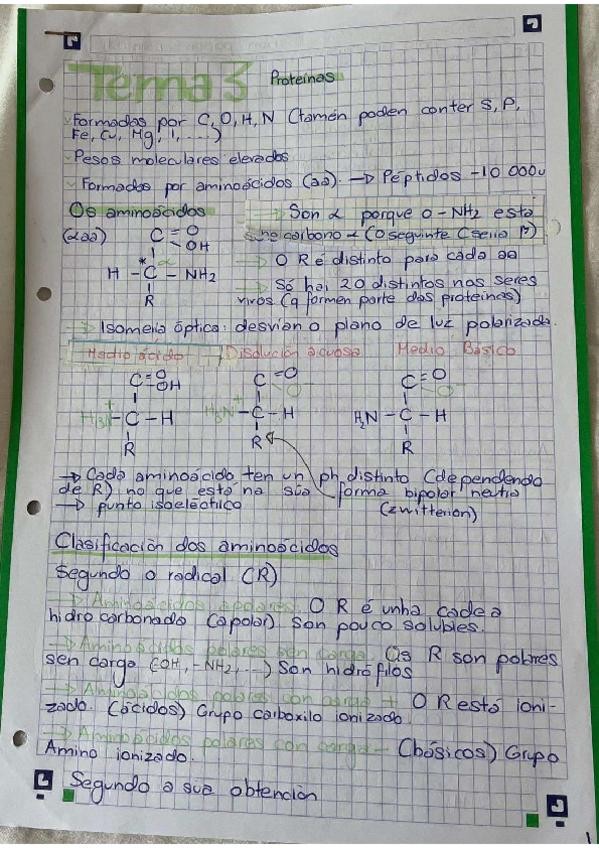 Tema 3 Proteínas
Formadas por C, O, H, N (tamén poden conter S, P,
Fe, Cu, Mg, I, ...)
Pesos moleculares elevados
Formados por aminoácidos (aa). → Péptidos -10 000u
Os aminoácidos
(αaa)
C = O
OH
* α
H - C - NH2
R
→ Son α porque o -NH2 está
no carbono α (O seguinte C sería β)
→ O R é distinto para cada aa
→ Só hai 20 distintos nos seres
vivos (q formen parte das proteínas)
→ Isomería óptica: desvían o plano de luz polarizada.
Medio ácido Disolución acuosa Medio Básico
C = O
OH
H3N+ - C - H
R
C = O
O
H3N+ - C - H
R
C = O
O
H2N - C - H
R
→ Cada aminoácido ten un ph distinto (dependendo
de R) no que está na súa forma bipolar neutra
→ punto isoeléctrico (zwitterión)
Clasificación dos aminoácidos
Segundo o radical (R)
→ Aminoácidos apolares. O R é unha cadea
hidrocarbonada (apolar). Son pouco solubles.
→ Aminoácidos polares sen carga. Os R son polares
sen carga (-OH, -NH2, ...) Son hidrófilos
→ Aminoácidos polares con carga + O R está ioni-
zado. (ácidos) Grupo carboxilo ionizado.
→ Aminoácidos polares con carga - (básicos) Grupo
Amino ionizado.
Segundo a súa obtención